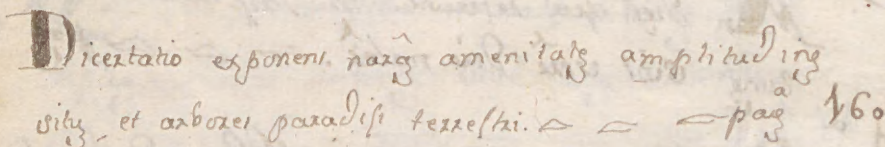 Dicertatio exponens narꝫ̂ amenitatꝫ amplitudinꝫ
situꝫ et arbores paradisi terrestri. pagᵃ 160